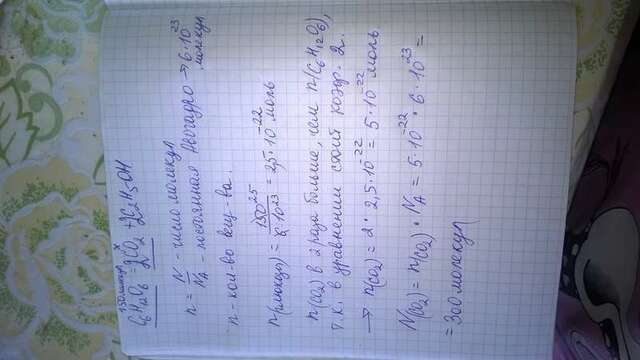 150 молекул x
C₆H₁₂O₆ = 2CO₂ + 2C₂H₅OH
n = N/Nₐ - число молекул
- постоянная Авогадро → 6·10²³ молекул
n - кол-во вещ-ва.
n(глюкозы) = 150²⁵/6·10²³ = 2,5·10⁻²² моль
n(CO₂) в 2 раза больше, чем n(C₆H₁₂O₆),
т.к. в уравнении стоит коэф. 2.
→ n(CO₂) = 2 · 2,5·10⁻²² = 5·10⁻²² моль
N(CO₂) = n(CO₂) · Nₐ = 5·10⁻²² · 6·10²³ =
= 300 молекул